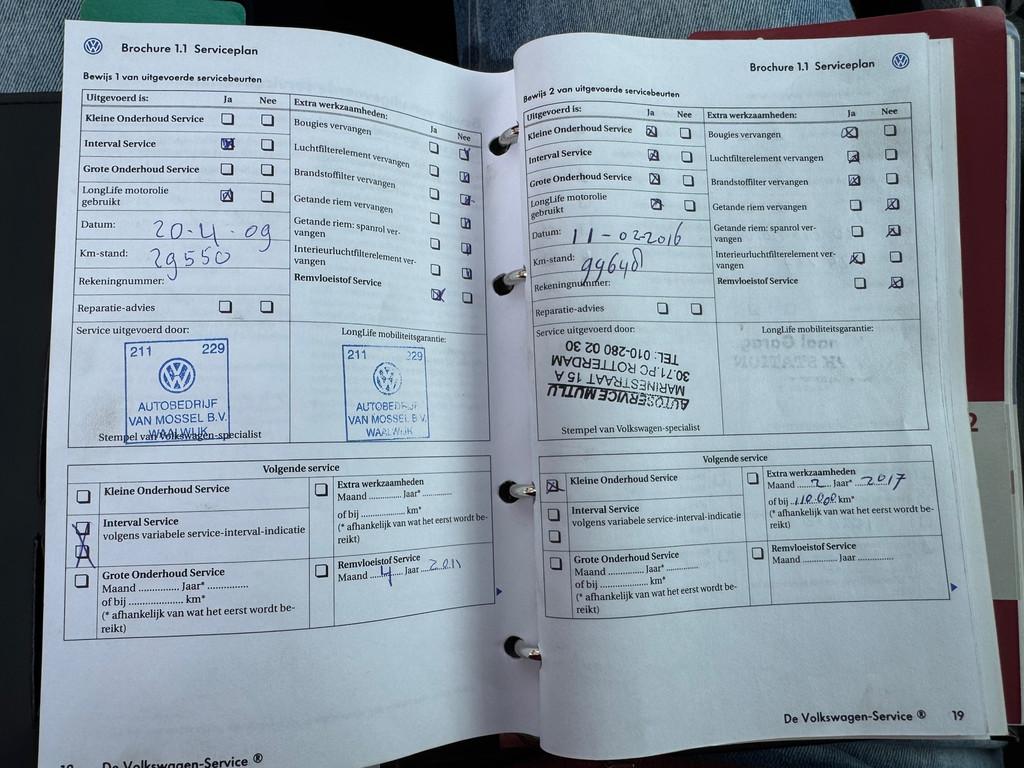 Brochure 1.1 Serviceplan
Bewijs 1 van uitgevoerde servicebeurten
Uitgevoerd is: Ja Nee
Kleine Onderhoud Service
Interval Service
Grote Onderhoud Service
LongLife motorolie
gebruikt
Datum: 20-4-09
Km-stand: 29550
Rekeningnummer:
Reparatie-advies
Extra werkzaamheden: Ja Nee
Bougies vervangen
Luchtfilterelement vervangen
Brandstoffilter vervangen
Getande riem vervangen
Getande riem: spanrol ver-
vangen
Interieurluchtfilterelement ver-
vangen
Remvloeistof Service
Service uitgevoerd door:
211 229
AUTOBEDRIJF
VAN MOSSEL B.V.
WAALWIJK
Stempel van Volkswagen-specialist
LongLife mobiliteitsgarantie:
211 229
AUTOBEDRIJF
VAN MOSSEL B.V.
WAALWIJK
Volgende service
Kleine Onderhoud Service
Interval Service
volgens variabele service-interval-indicatie
Grote Onderhoud Service
Maand .............. Jaar* ..............
of bij .................... km*
(* afhankelijk van wat het eerst wordt be-
reikt)
Extra werkzaamheden
Maand .............. Jaar* ..............
of bij .................... km*
(* afhankelijk van wat het eerst wordt be-
reikt)
Remvloeistof Service
Maand 4 Jaar 2011
De Volkswagen-Service ®
Brochure 1.1 Serviceplan
Bewijs 2 van uitgevoerde servicebeurten
Uitgevoerd is: Ja Nee
Kleine Onderhoud Service
Interval Service
Grote Onderhoud Service
LongLife motorolie
gebruikt
Datum: 11-02-2016
Km-stand: 99648
Rekeningnummer:
Reparatie-advies
Extra werkzaamheden: Ja Nee
Bougies vervangen
Luchtfilterelement vervangen
Brandstoffilter vervangen
Getande riem vervangen
Getande riem: spanrol ver-
vangen
Interieurluchtfilterelement ver-
vangen
Remvloeistof Service
Service uitgevoerd door:
AUTOSERVICE MUTLU
MARINESTRAAT 15 A
30.71.PC ROTTERDAM
TEL: 010-280 02 30
Stempel van Volkswagen-specialist
LongLife mobiliteitsgarantie:
Volgende service
Kleine Onderhoud Service
Interval Service
volgens variabele service-interval-indicatie
Grote Onderhoud Service
Maand .............. Jaar* ..............
of bij .................... km*
(* afhankelijk van wat het eerst wordt be-
reikt)
Extra werkzaamheden
Maand 2 Jaar* 2017
of bij 110.000 km*
(* afhankelijk van wat het eerst wordt be-
reikt)
Remvloeistof Service
Maand .............. Jaar ..............
De Volkswagen-Service ® 19